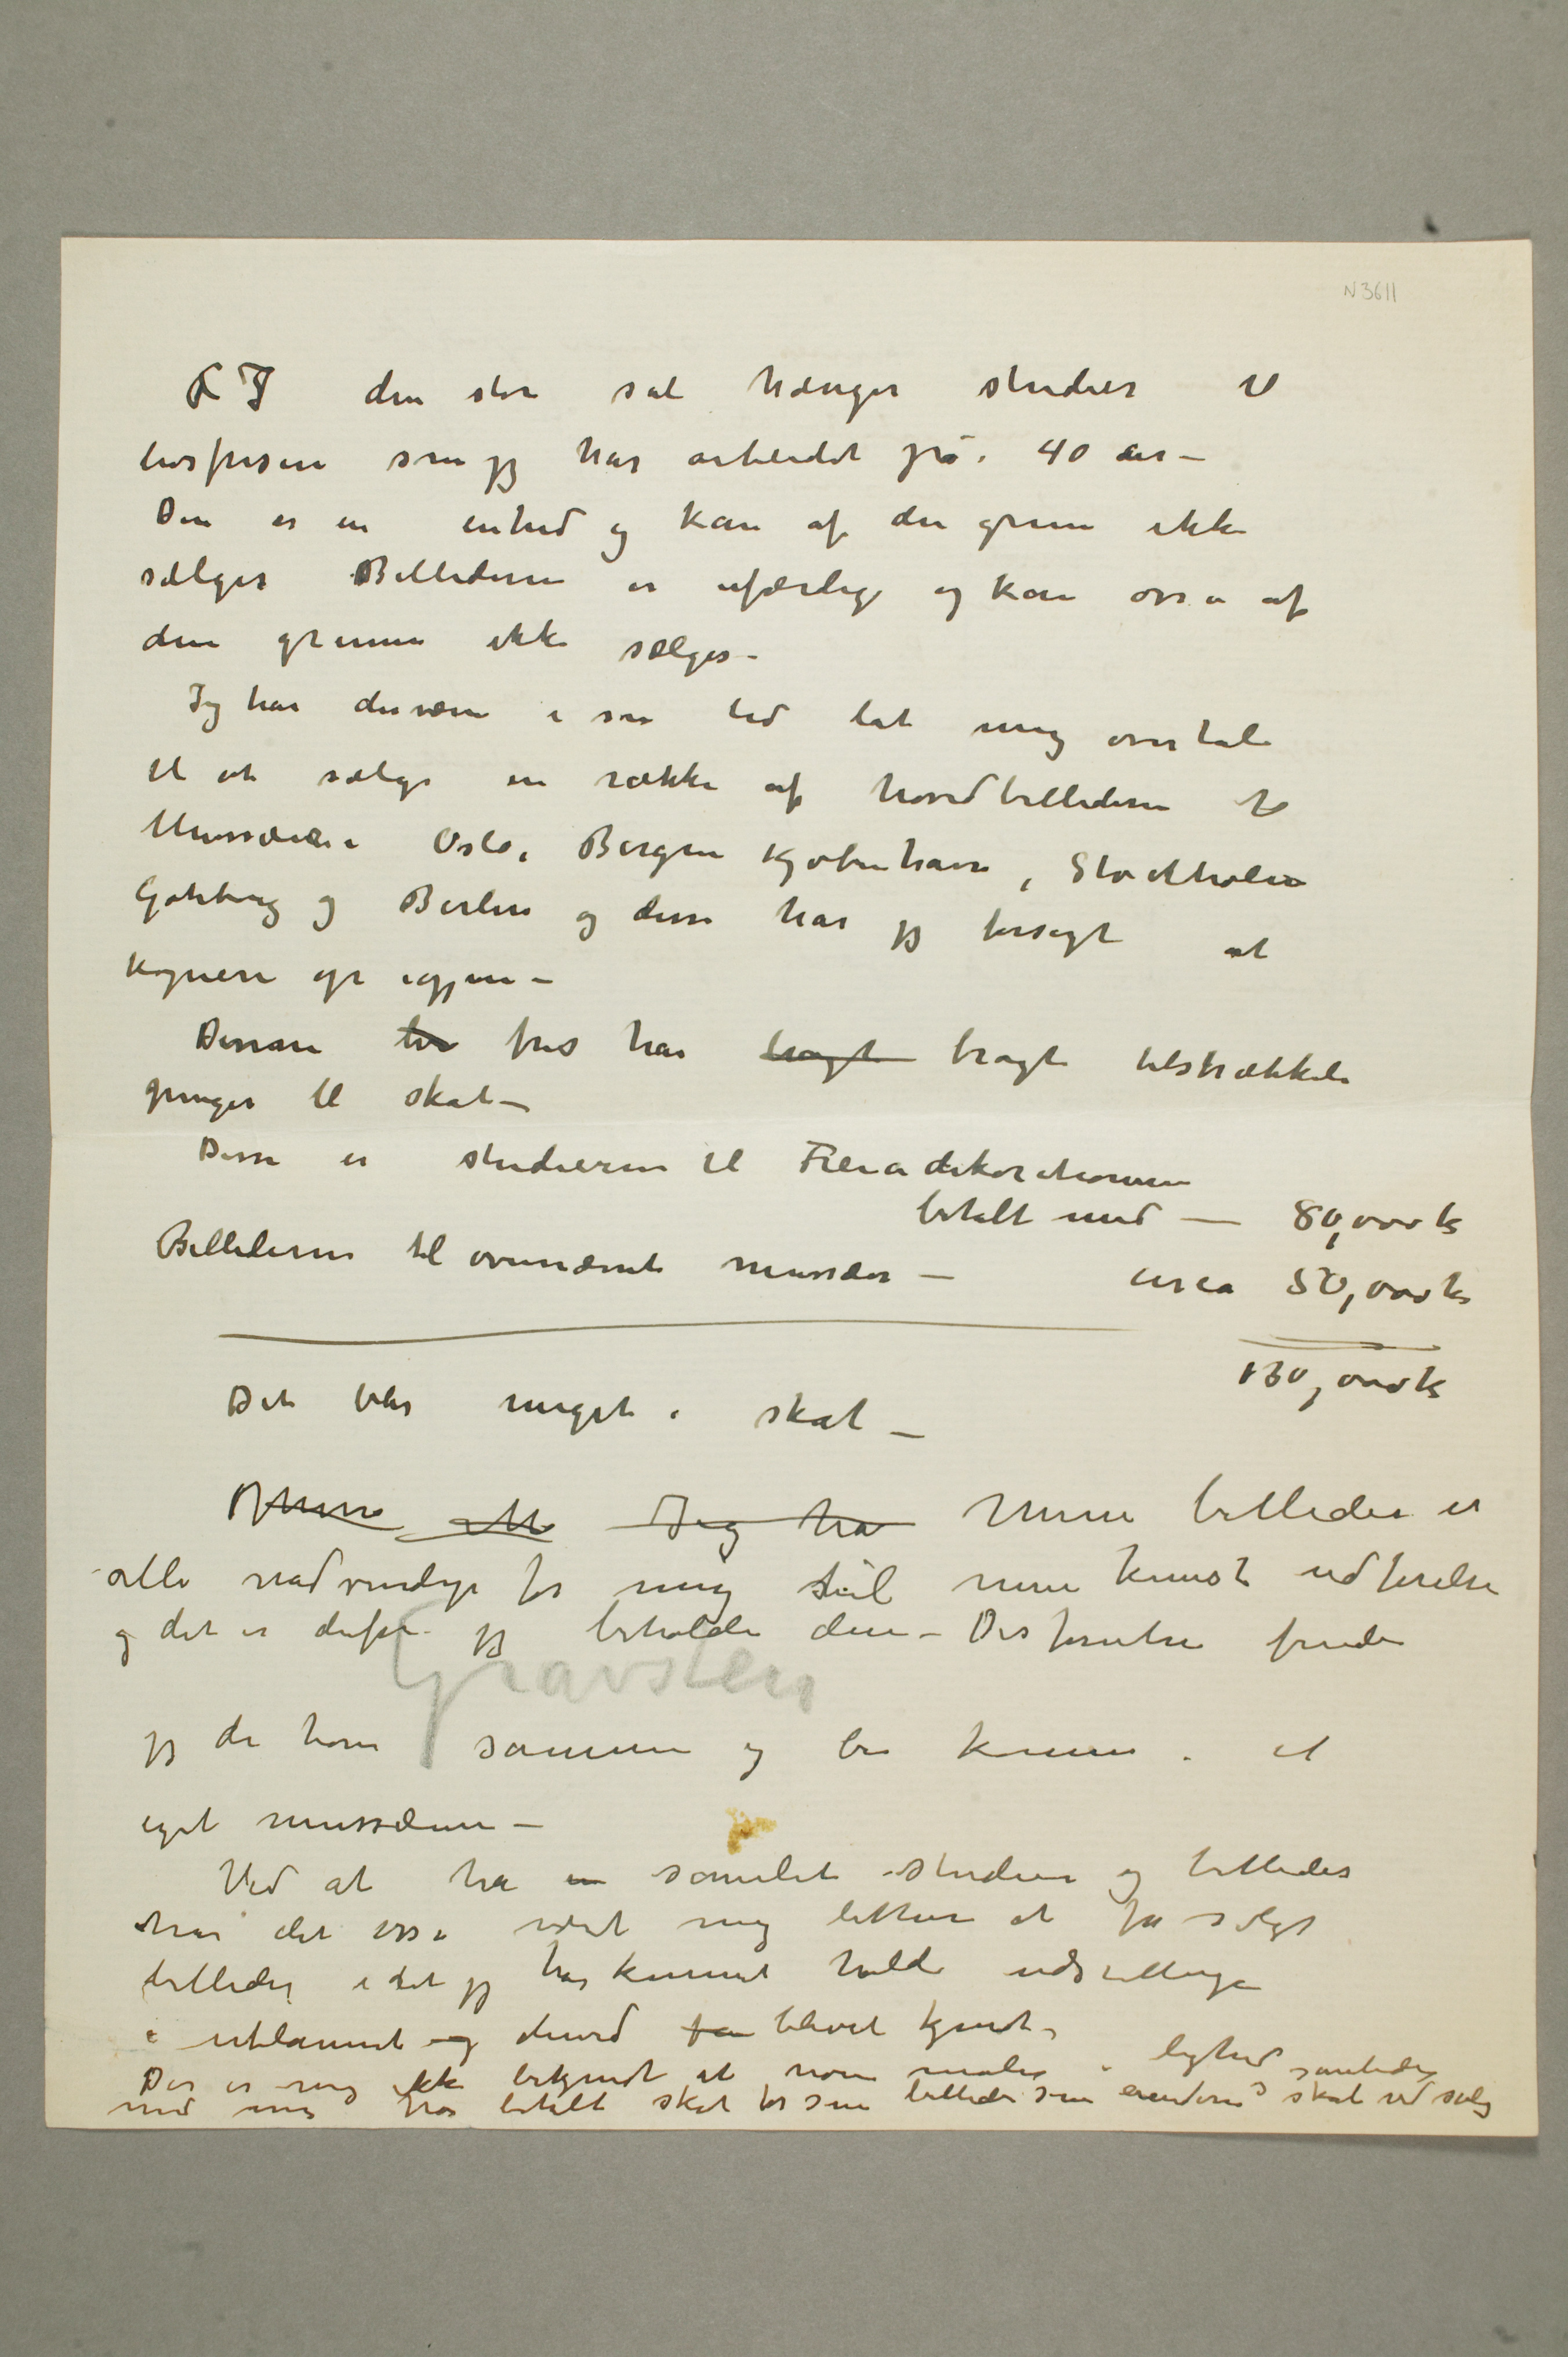 N 3611
I den store sal hænger studier til
livsfrisen som jeg har arbeidet på i 40 år –
Den er en enhed og kan af den grun ikke
sælges Billederne er ufærdige og kan osså af
den grunn ikke sælges –
Jeg har desværre i sin tid lat mig overtale
til at sælge en række af hovedbillederne til
Mussæer i Oslo, Bergen Kjøbenhavn, Stockholm
Gøteborg og Berlin og disse har jeg forsøgt at
kopiere op igjen –
Denne liv fris har bragt bragt tilstrækkeli
penger til skat –
Disse er studierne til Freiadekorationen
betalt med – 80,000 k
Billederne til ovennævnte mussæer – circa 50,000 k
130,000 k
Det blir meget i skat –
Mine alle Jeg ha Mine billeder er
alle nødvendige for mig til min kunst udførelse
og det er derfor jeg beholder dem – Desforuten finder
Gravsten
jeg de hører sammen og bør komme i et
eget mussæum –
Ved at ha en samlet studier og billeder
har det osså været mig lettere at få solgt
billeder idet jeg har kunnet holde udstillinger
i utlannet og derved fåe blevet kjendt –
Det er mig ikke bekjendt at noen maler i lighed
med mig har betalt skat for sine billeder som 
samtidig skat ved salg